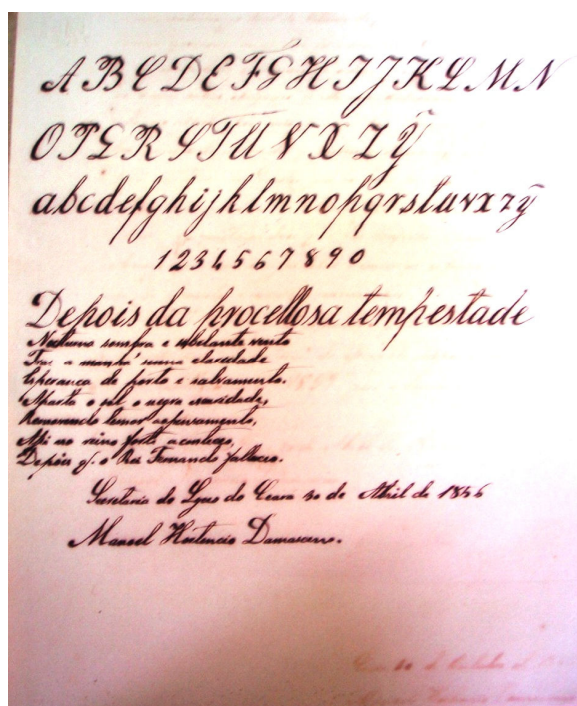 A B C D E F G H I J K L M N
O P Q R S T U V X Z Ỹ
abcdefghijklmnopqrstuvxzỹ
1 2 3 4 5 6 7 8 9 0
Depois da procellosa tempestade
Nocturna sombra e sibilante vento
Traz a manhã serena claridade
Esperança de porto e salvamento.
Aparta o sol a negra
Removendo temor ao pensamento,
Assi no reino forte aconteceo,
Depois q. o Rei Fernando falleceo.
Secretaria do Lyceo do Ceara 30 de Abril de 1856
Manoel Hortencio Damasceno.